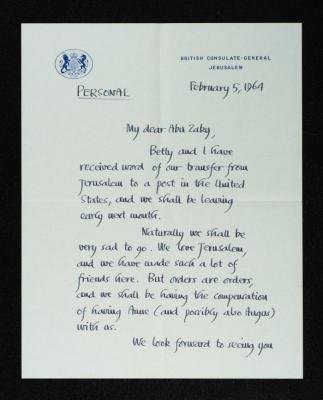 BRITISH CONSULATE-GENERAL
JERUSALEM
PERSONAL
February 5, 1964
My dear Abu Zaky,
Betty and I have
received word of our transfer from
Jerusalem to a post in the United
States, and we shall be leaving
early next month.
Naturally we shall be
very sad to go. We love Jerusalem,
and we have made such a lot of
friends here. But orders are orders,
and we shall be having the compensation
of having Anne (and possibly also Angus)
with us.
We look forward to seeing you